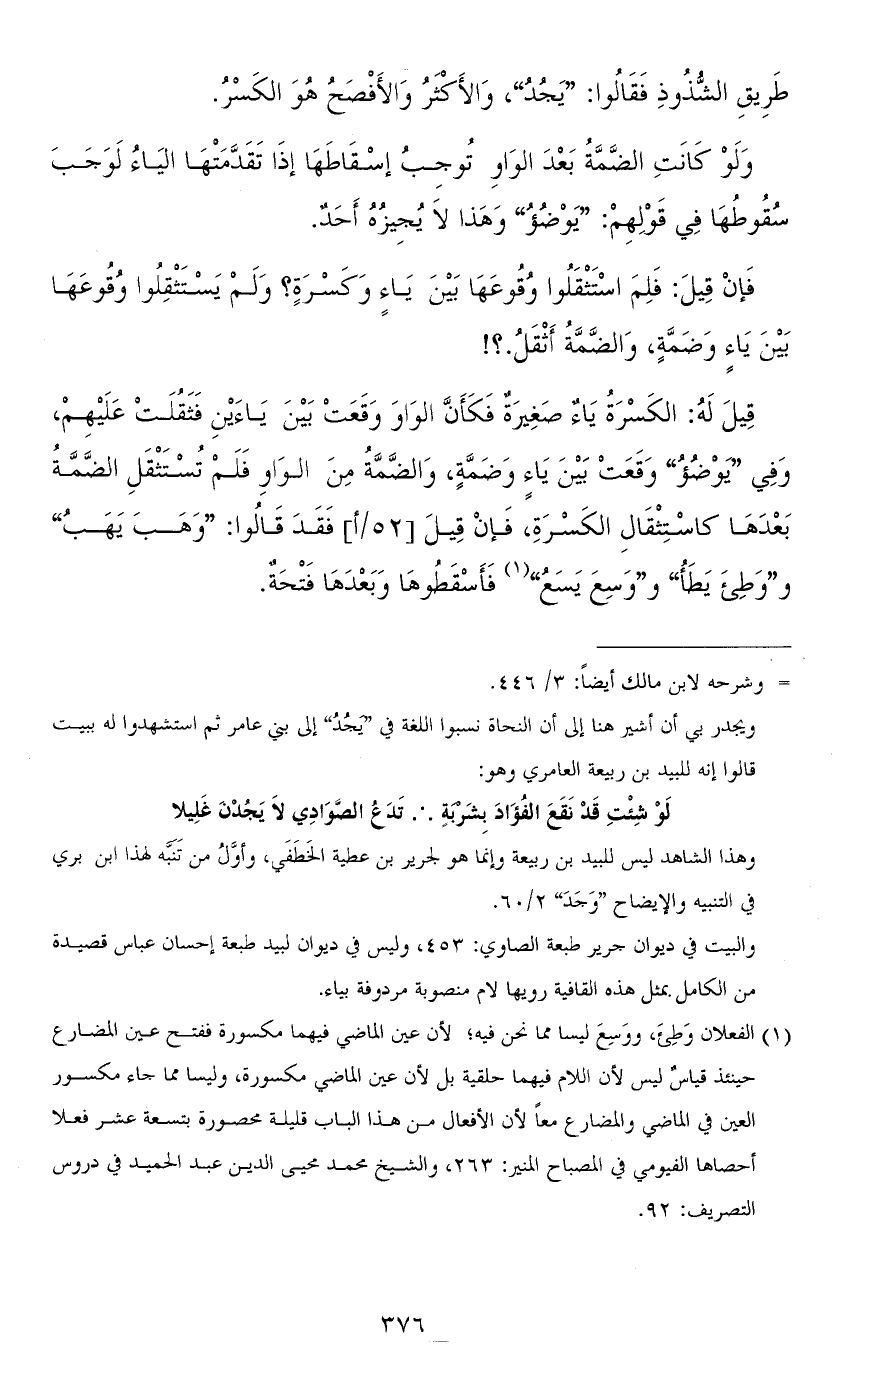 طَرِيقِ الشُّذُوذِ فَقَالُوا: ”يَجُدُ“، وَالأَكْثَرُ وَالأَفْصَحُ هُوَ الكَسْرُ.
وَلَوْ كَانَتِ الضَّمَّةُ بَعْدَ الوَاوِ تُوجِبُ إِسْقَاطَهَا إِذَا تَقَدَّمَتْهَا اليَاءُ لَوَجَبَ
سُقُوطُهَا فِي قَوْلِهِمْ: ”يَوْضُؤُ“ وَهَذَا لاَ يُجِيزُهُ أَحَدٌ.
فَإِنْ قِيلَ: فَلِمَ اسْتَثْقَلُوا وُقُوعَهَا بَيْنَ يَاءٍ وَكَسْرَةٍ؟ وَلَمْ يَسْتَثْقِلُوا وُقُوعَهَا
بَيْنَ يَاءٍ وَضَمَّةٍ، وَالضَّمَّةُ أَثْقَلُ.؟!
قِيلَ لَهُ: الكَسْرَةُ يَاءٌ صَغِيرَةٌ فَكَأَنَّ الوَاوَ وَقَعَتْ بَيْنَ يَاءَيْنِ فَثَقُلَتْ عَلَيْهِمْ،
وَفِي ”يَوْضُؤُ“ وَقَعَتْ بَيْنَ يَاءٍ وَضَمَّةٍ، وَالضَّمَّةُ مِنَ الوَاوِ فَلَمْ تُسْتَثْقَلِ الضَّمَّةُ
بَعْدَهَا كَاسْتِثْقَالِ الكَسْرَةِ، فَإِنْ قِيلَ [٥٢/أ] فَقَدَ قَالُوا: ”وَهَبَ يَهَبُ“
و”وَطِئَ يَطَأُ“ و”وَسِعَ يَسَعُ“(١) فَأَسْقَطُوهَا وَبَعْدَهَا فَتْحَةٌ.
= وشرحه لابن مالك أيضاً: ٣/ ٤٤٦.
ويجدر بي أن أشير هنا إلى أن النحاة نسبوا اللغة في ”يَجُدُ“ إلى بني عامر ثم استشهدوا له ببيت
قالوا إنه للبيد بن ربيعة العامري وهو:
لَوْ شِئْتِ قَدْ نَقَعَ الفُؤَادَ بِشَرْبَةٍ ∴ تَدَعُ الصَّوَادِي لاَ يَجُدْنَ غَلِيلا
وهذا الشاهد ليس للبيد بن ربيعة وإنما هو لجرير بن عطية الخَطَفَي، وأوَّلُ من تَنَبَّه لهذا ابن بري
في التنبيه والإيضاح ”وَجَدَ“ ٦٠/٢.
والبيت في ديوان جرير طبعة الصاوي: ٤٥٣، وليس في ديوان لبيد طبعة إحسان عباس قصيدة
من الكامل بمثل هذه القافية رويها لام منصوبة مردوفة بياء.
(١) الفعلان وَطِئَ، ووَسِعَ ليسا مما نحن فيه؛ لأن عين الماضي فيهما مكسورة ففتح عين المضارع
حينئذ قياسٌ ليس لأن اللام فيهما حلقية بل لأن عين الماضي مكسورة، وليسا مما جاء مكسور
العين في الماضي والمضارع معاً لأن الأفعال من هذا الباب قليلة محصورة بتسعة عشر فعلا
أحصاها الفيومي في المصباح المنير: ٢٦٣، والشيخ محمد محيي الدين عبد الحميد في دروس
التصريف: ٩٢.
٣٧٦